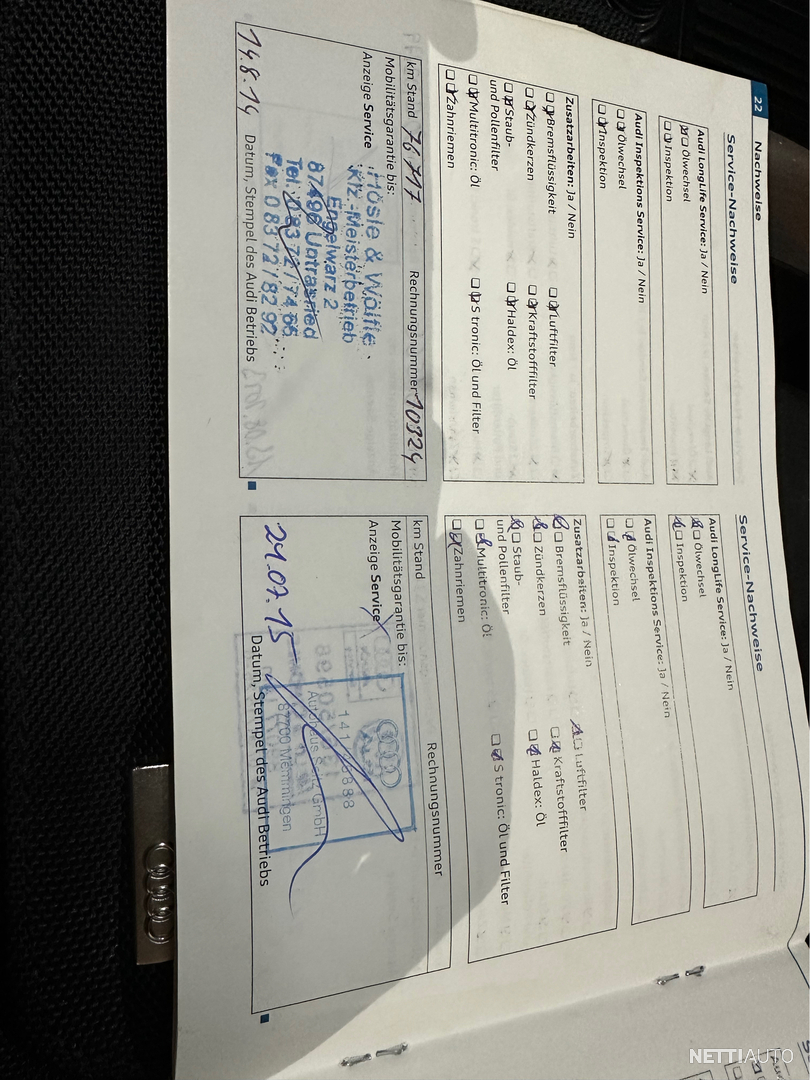 22 Nachweise
Service-Nachweise
Audi LongLife Service: Ja / Nein
Ölwechsel
Inspektion
Audi Inspektions Service: Ja / Nein
Ölwechsel
Inspektion
Zusatzarbeiten: Ja / Nein
Bremsflüssigkeit
Luftfilter
Zündkerzen
Kraftstofffilter
Staub-
und Pollenfilter
Haldex: Öl
Multitronic: Öl
S tronic: Öl und Filter
Zahnriemen
km Stand 76 717
Rechnungsnummer 10324
Mobilitätsgarantie bis:
Anzeige Service
Hösle & Wölfle
Kfz.-Meisterbetrieb
Engelwarz 2
87496 Untrasried
Tel. 0 83 72 / 74 66
Fax 0 83 72 / 82 92
14.8.14
Datum, Stempel des Audi Betriebs
Service-Nachweise
Audi LongLife Service: Ja / Nein
Ölwechsel
Inspektion
Audi Inspektions Service: Ja / Nein
Ölwechsel
Inspektion
Zusatzarbeiten: Ja / Nein
Bremsflüssigkeit
Luftfilter
Zündkerzen
Kraftstofffilter
Staub-
und Pollenfilter
Haldex: Öl
Multitronic: Öl
S tronic: Öl und Filter
Zahnriemen
km Stand
Rechnungsnummer
Mobilitätsgarantie bis:
Anzeige Service
Autohaus
GmbH
87700 Memmingen
24.07.15
Datum, Stempel des Audi Betriebs
NETTIAUTO